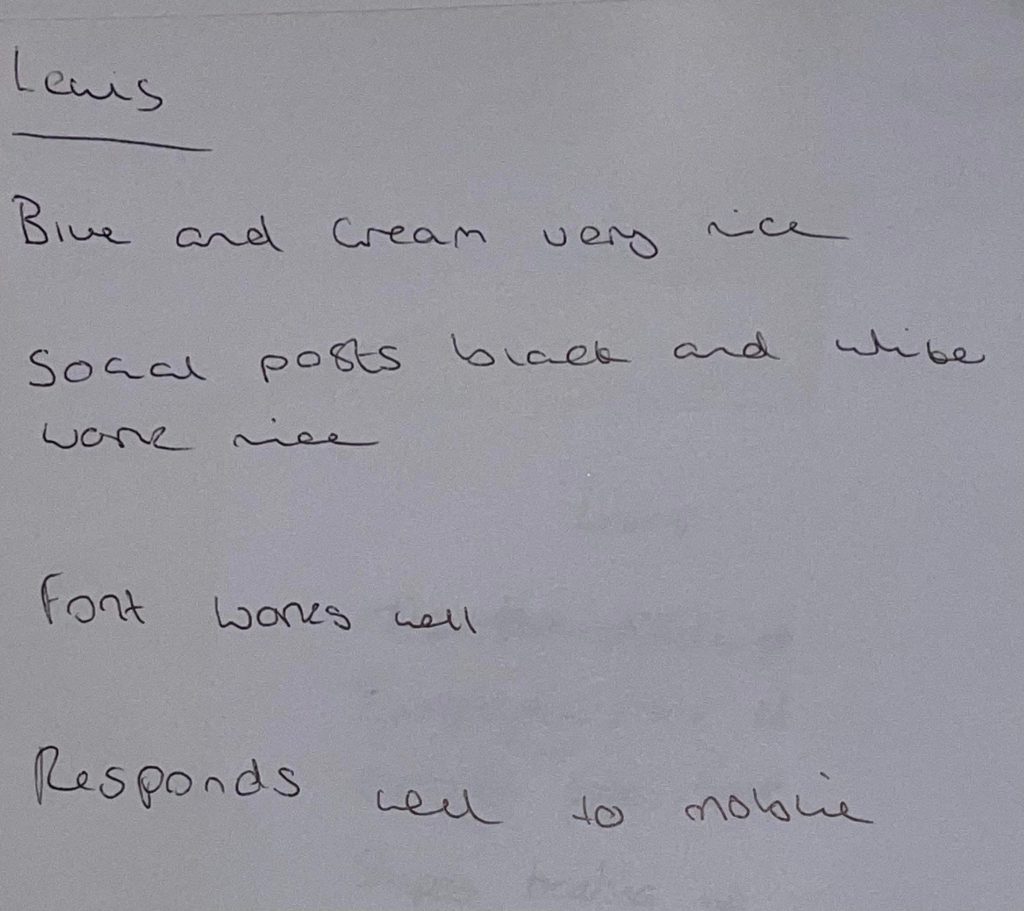 Lewis
Blue and cream very nice
Social posts black and white
work nice
Font works well
Responds well to mobile